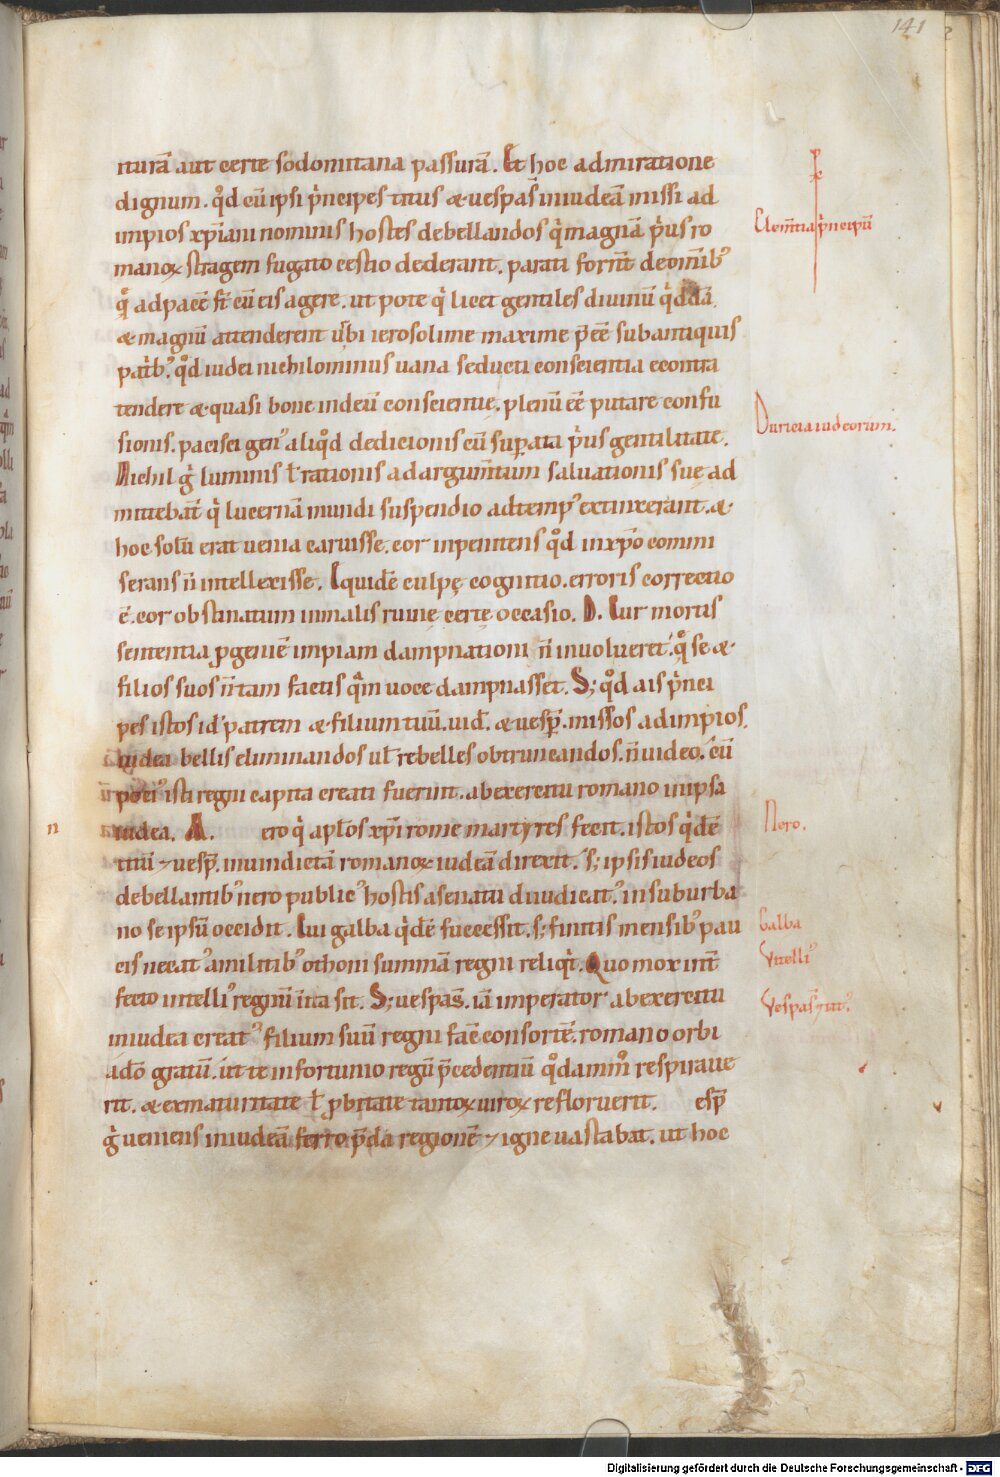 141
iturā aut certe sodomitana passurā. Et hoc admiratione
dignum. qd cū ipsi pncipes titus & uespas̄ in iudeā missi ad
impios xp̄iani nominis hostes debellandos qi magnā pus ro
manoꝝ stragem fugato cestio dederant. parati fornt̄ de omīb;
q̊ ad pacē st̄ cū eis agere. ut pote qi licet gentiles diuinū qddā
Clem̄tia pncipū
& magnū attenderent urbi ierosolime maxime p̄ eē sub antiquis
patb; qd iudei nichilominus uana seducti conscientia econtra
tendere & quasi bone in deū conscientie. plenū eē putare confu
Duricia iudeorum.
sionis. pacisci gen' aliqd dedicionis cū superata pus gentilitate.
Nichil g luminis ł rationis ad argum̄tum saluationis suę ad
mittebāt qi lucernā mundi suspendio ad temp' extinxerant. &
hoc solū erat uenia caruisse. cor inpenitens qd in xp̄o commi
serans n̄ intellexisse. Iquidē culpę cognitio. erroris correctio
ē. cor obstinatum in malis ruine certe occasio. D. Cur mortis
sententia progeniē impiam dampnationi n̄ inuolueret. q̊ se &
filios suos n̄ tam factis qm uoce dampnasset. S; qd ais pnci
pes istos id' patrem & filium tuū. uid̄. & uesp̄. missos ad impios
iudea bellis eliminandos ul rebelles obtruncandos. n̄ uideo. cū
poti' isti regni capita creati fuerint. ab exercitu romano in ipsa
iudea. A. ero qi apl̄os xp̄i rome martyres fecit. istos qdē
n
Nero.
titū 7 uesp̄. in uindictā romanoꝝ iudeā direxit. S; ipsis iudeos
debellantib; nero public' hostis a senatu diiudicat'. in suburba
no se ipsū occidit. Cui galba qdē successit. s; finitis mensib; pau
Galba
cis necat' a militib; othoni summā regni reliqt. Quo mox int̄
Vitelli'
fecto uitelli' regnū īta sit. S; uespas̄. iā imperator ab exercitu
Vespas̄. 7 tit'.
in iudea creat' filium suū regni facē consortē. romano orbi
ado gratū. ut te infortunio regū p̄cedentiū qdammo respiraue
rit. & ex maturitate ł probitate tantoꝝ uiroꝝ refloruerit. esp̄
g ueniens in iudeā ferro p̄da regionē 7 igne uastabat. ut hoc
Digitalisierung gefördert durch die Deutsche Forschungsgemeinschaft - DFG